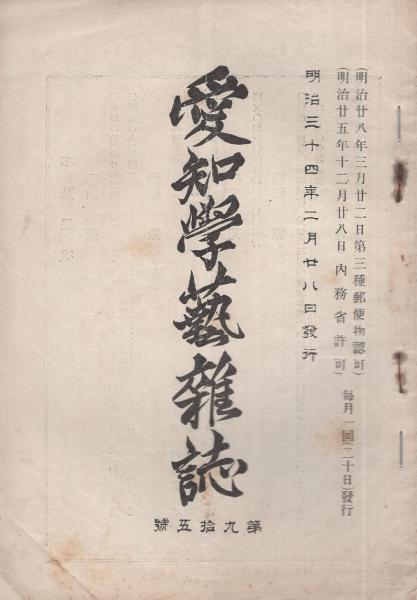 (明治廿八年三月廿二日第三種郵便物認可)
(明治廿五年十二月廿八日內務省許可)
每月一回(二十日)發行
明治三十四年二月廿八日發行
愛知學藝雜誌
第九拾五號